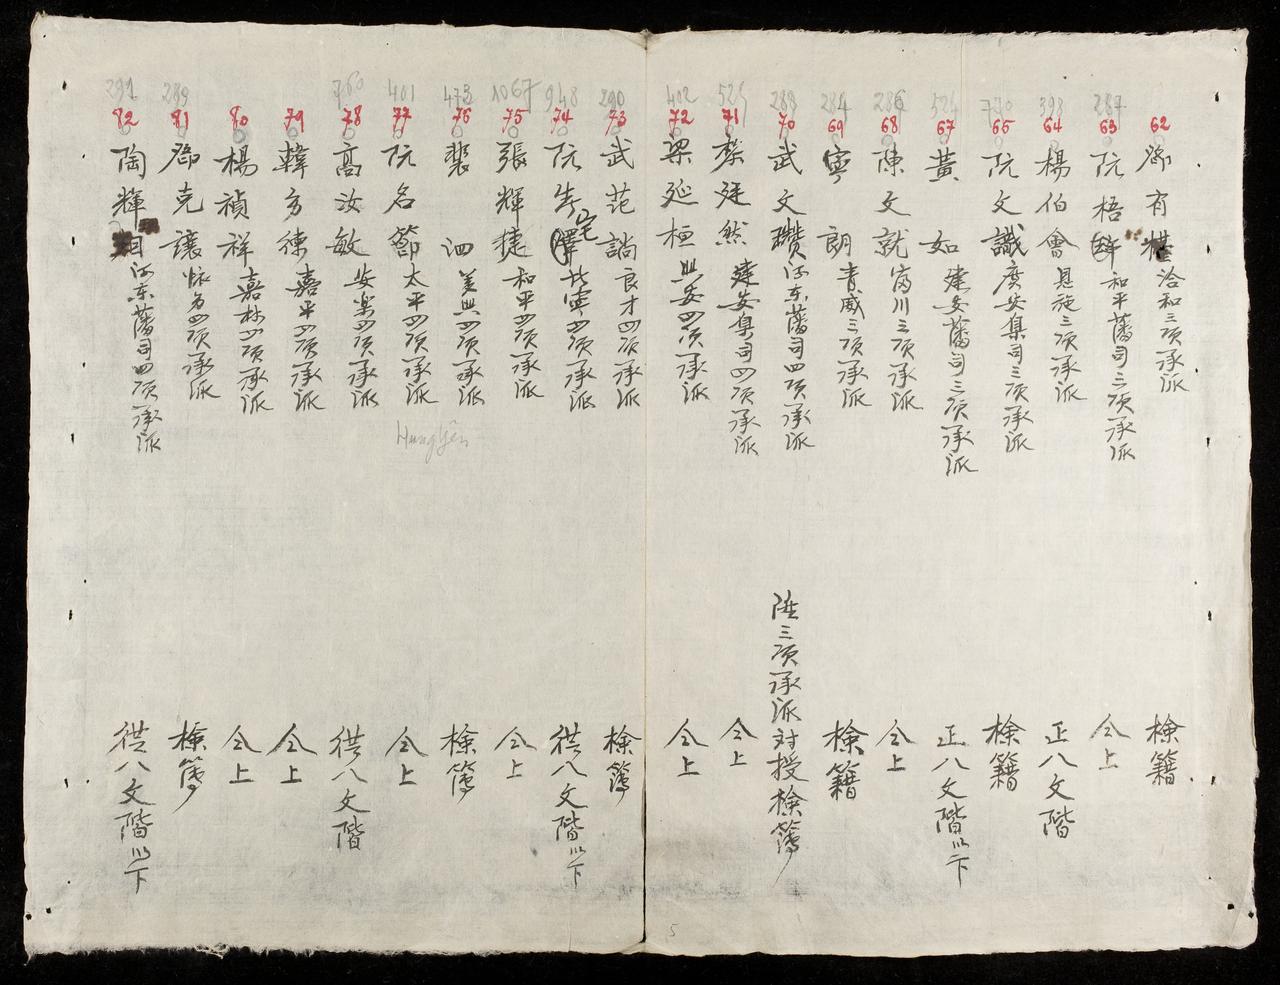 62 有 洽和三項承派 檢籍
287 63 阮梧 和平藩司三項承派 仝上
393 64 楊伯會 恩施三項承派 正八文階
770 65 阮文識 廣安臬司三項承派 檢籍
67 黃如 建安藩司三項承派 正八文階以下
286 68 陳文就 富川三項承派 仝上
284 69 寧朗 青威三項承派 檢籍
288 70 武文瓚 河東藩司四項承派 陞三項承派对授檢簿
71 廷然 建安臬司四項承派 仝上
402 72 梁延桓 興安四項承派 仝上
290 73 武范 良才四項承派 檢簿
948 74 阮 澤 宅 四項承派 從八文階以下
1067 75 張輝捷 和平四項承派 仝上
473 76 裴泗 美興四項承派 檢簿
401 77 阮名節 太平四項承派 仝上
Hưng Yên
760 78 高汝敏 安樂四項承派 從八文階
79 韓 嘉平四項承派 仝上
80 楊禎祥 嘉林四項承派 仝上
289 81 鄧克讓 四項承派 檢簿
291 82 陶輝 河東藩司四項承派 從八文階以下
5